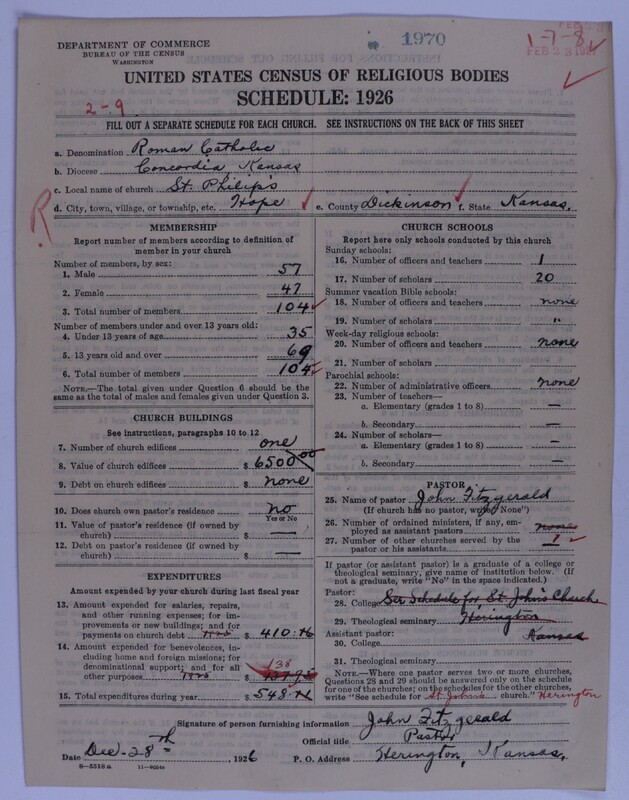 DEPARTMENT OF COMMERCE
BUREAU OF THE CENSUS
WASHINGTON
1970
1-7-8
UNITED STATES CENSUS OF RELIGIOUS BODIES
SCHEDULE: 1926
2-9
FILL OUT A SEPARATE SCHEDULE FOR EACH CHURCH. SEE INSTRUCTIONS ON THE BACK OF THIS SHEET
a. Denomination Roman Catholic
b. Diocese Concordia Kansas
c. Local name of church St. Philip's
R
d. City, town, village, or township, etc. Hope e. County Dickinson f. State Kansas.
MEMBERSHIP
Report number of members according to definition of
member in your church
Number of members, by sex:
1. Male 57
2. Female 47
3. Total number of members 104
Number of members under and over 13 years old:
4. Under 13 years of age 35
5. 13 years old and over 69
6. Total number of members 104
NOTE.—The total given under Question 6 should be
same as the total of males and females given under Question 3.
CHURCH BUILDINGS
See instructions, paragraphs 10 to 12
7. Number of church edifices one
8. Value of church edifices $ 6500.00
9. Debt on church edifices $ none
10. Does church own pastor's residence? no
Yes or No
11. Value of pastor's residence (if owned by
church) $ —
12. Debt on pastor's residence (if owned by
church) $ —
EXPENDITURES
Amount expended by your church during last fiscal year
13. Amount expended for salaries, repairs,
and other running expenses; for im-
provements or new buildings; and for
payments on church debt 1925 $ 410.
14. Amount expended for benevolences,
including home and foreign missions; for
denominational support; and for all
other purposes 1925 $ 138
15. Total expenditures during year $ 548.
CHURCH SCHOOLS
Report here only schools conducted by this church
Sunday schools:
16. Number of officers and teachers 1
17. Number of scholars 20
Summer vacation Bible schools:
18. Number of officers and teachers none
19. Number of scholars "
Week-day religious schools:
20. Number of officers and teachers none
21. Number of scholars
Parochial schools:
22. Number of administrative officers none
23. Number of teachers—
a. Elementary (grades 1 to 8) —
b. Secondary —
24. Number of scholars—
a. Elementary (grades 1 to 8) —
b. Secondary —
PASTOR
25. Name of pastor John Fitzgerald
(If church has no pastor, write "None")
26. Number of ordained ministers, if any, em-
ployed as assistant pastors none
27. Number of other churches served by the
pastor or his assistants 1
If pastor (or assistant pastor) is a graduate of a college or
theological seminary, give name of institution below. (If
not a graduate, write "No" in the space indicated.)
Pastor:
28. College See Schedule for St. John's Church
29. Theological seminary Herington
Assistant pastor: Kansas
30. College
31. Theological seminary
NOTE.—Where one pastor serves two or more churches,
Questions 28 and 29 should be answered only on the schedule
for one of the churches; on the schedules for the other churches,
write "See schedule for St. John's church." Herington
Signature of person furnishing information John Fitzgerald
Official title Pastor
Date Dec. 28th, 1926 P. O. Address Herington, Kansas.
8—5518a 11—9054a